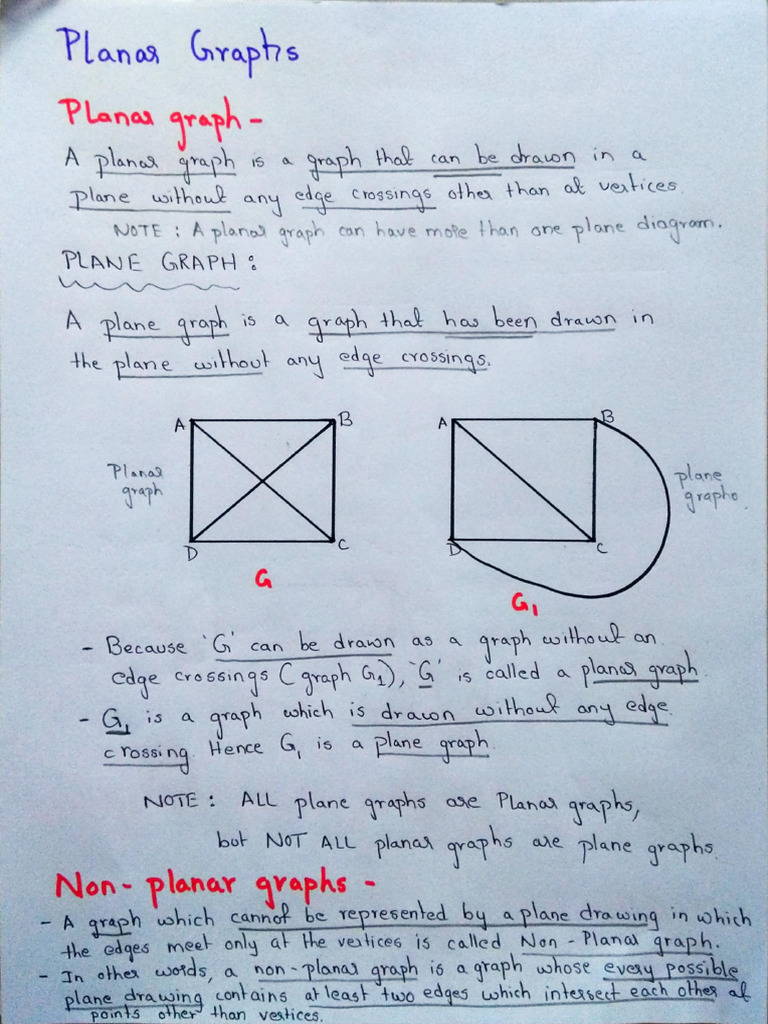 Planar Graphs
Planar graph -
A planar graph is a graph that can be drawn in a
plane without any edge crossings other than at vertices.
NOTE : A planar graph can have more than one plane diagram.
PLANE GRAPH :
A plane graph is a graph that has been drawn in
the plane without any edge crossings.
A B A B
Planar plane
graph grapho
D C D C
G
G1
- Because 'G' can be drawn as a graph without an
edge crossings (graph G1), 'G' is called a planar graph.
- G1 is a graph which is drawn without any edge
crossing. Hence G1 is a plane graph.
NOTE : ALL plane graphs are Planar graphs,
but NOT ALL planar graphs are plane graphs.
Non - planar graphs -
- A graph which cannot be represented by a plane drawing in which
the edges meet only at the vertices is called Non - Planar graph.
- In other words, a non - planar graph is a graph whose every possible
plane drawing contains atleast two edges which intersect each other at
points other than vertices.